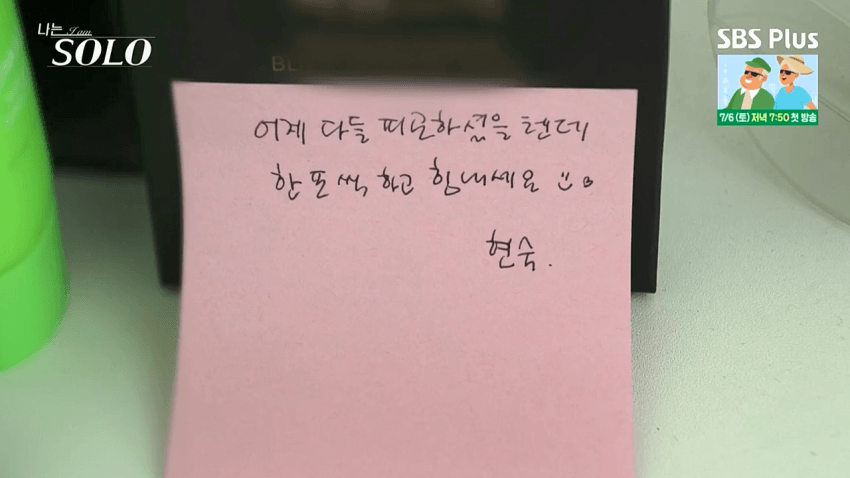 나는 I am
SOLO
SBS Plus
7/6 (토) 저녁 7:50 첫 방송
어제 다들 피곤하셨을 텐데
한 포 씩 하고 힘내세요
현숙.